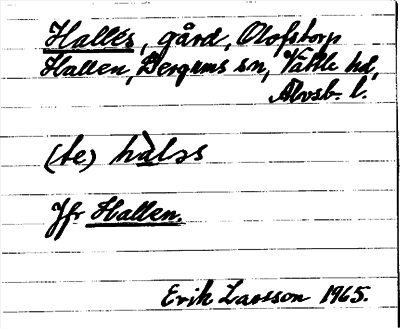 Halles, gård, Olofstorp
Hallen, Bergums sn, Vättle hd,
Älvsb. l.
(te) hàlǝs
Jfr Hallen.
Erik Larsson 1965.